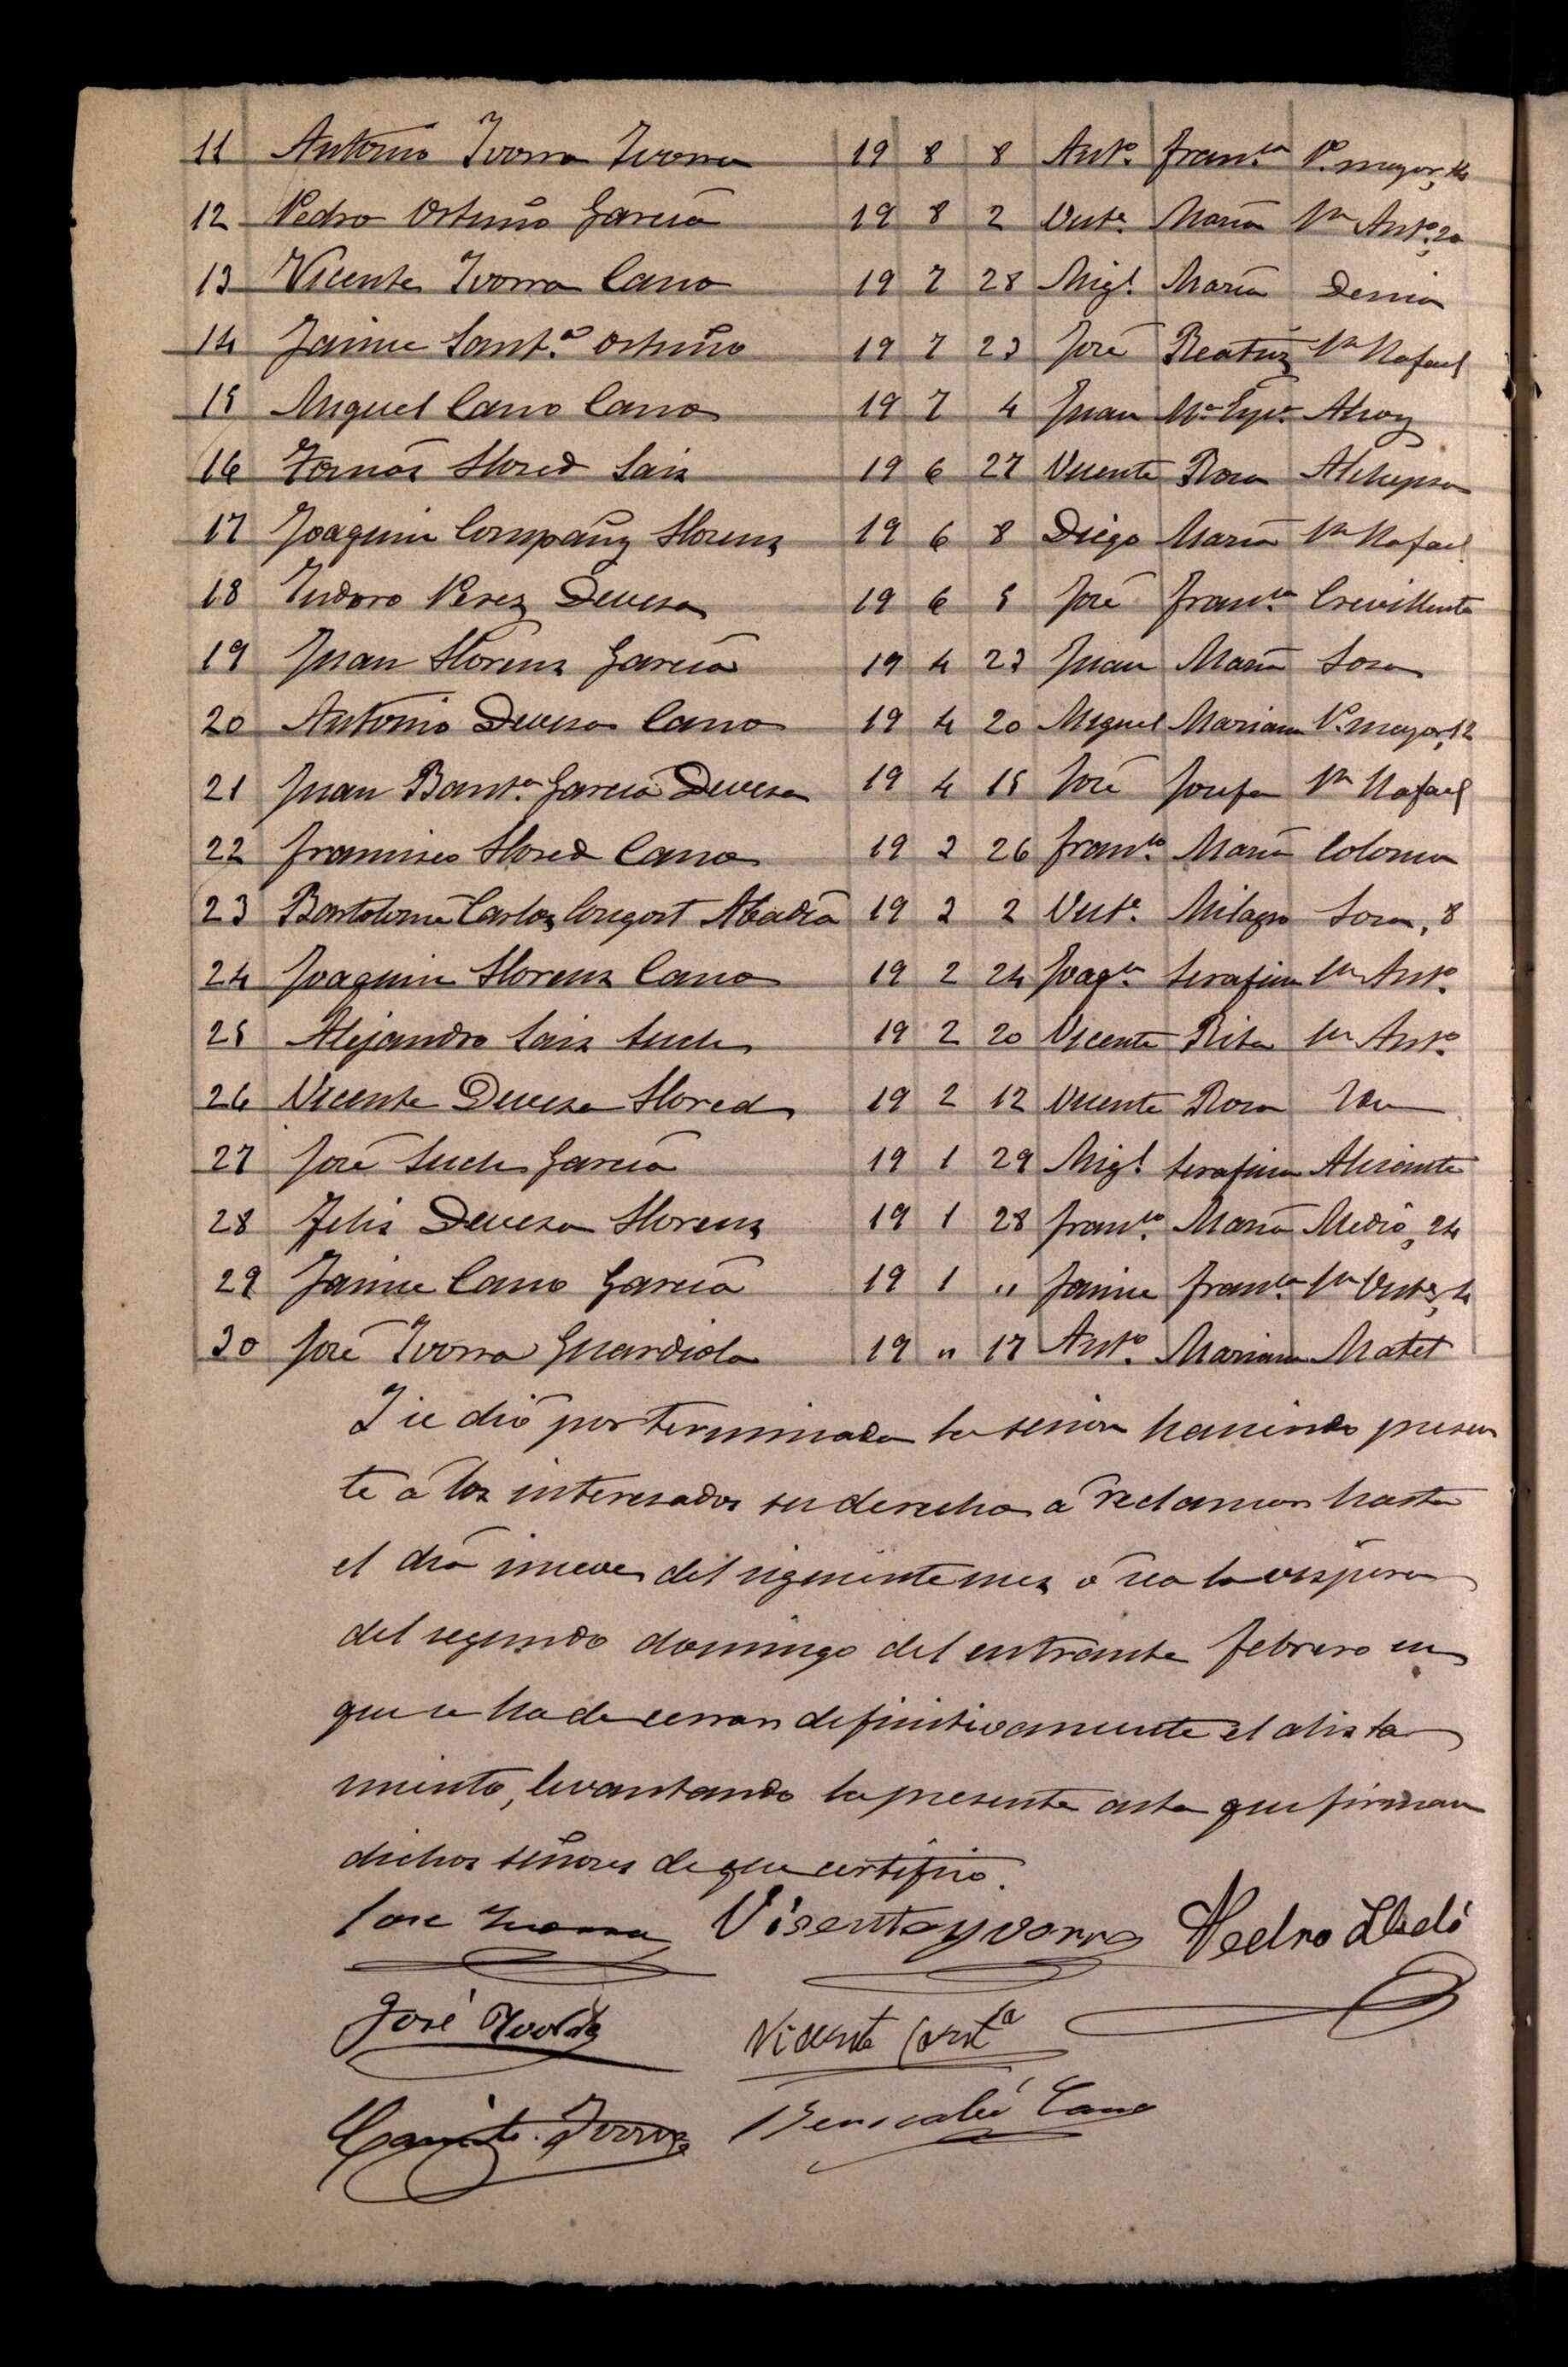 11 Antonio Ivorra Ivorra 19 8 8 Antº Franᶜᵃ Pº mayor, 14
12 Pedro Ortuño García 19 8 2 Vicᵗᵉ María Sn Antº, 20
13 Vicente Ivorra Cano 19 7 28 Migˡ María Denia
14 Jaime Santª Ortuño 19 7 23 José Beatriz Sn Rafael
15 Miguel Cano Cano 19 7 4 Juan Mª Alcoy
16 Tomás Llored Saiz 19 6 27 Vicente Rosa
17 Joaquin Compañy Llorens 19 6 8 Diego María Sn Rafael
18 Isidoro Perez Devesa 19 6 5 José Franᶜᵃ Crevillente
19 Juan Llorens García 19 4 23 Juan María
20 Antonio Devesa Cano 19 4 20 Miguel Mariana Pº mayor, 12
21 Juan Bautª García Devesa 19 4 15 José Josefa Sn Rafael
22 Francisco Llored Cano 19 3 26 Franᶜᵒ María Coloma
23 Bartolomé Carlos Congost Abadía 19 3 2 Vicᵗᵉ Milagro 8
24 Joaquin Llorens Cano 19 2 24 Joaqⁿ Serafina Sn Antº
25 Alejandro Saiz Such 19 2 20 Vicente Rita Sn Antº
26 Vicente Devesa Llored 19 2 12 Vicente Rosa
27 José Such García 19 1 29 Migˡ Serafina Alicante
28 Felis Devesa Llorens 19 1 28 Franᶜᵒ María Medio, 24
29 Jaime Cano García 19 1 " Jaime Franᶜᵃ Sn Vicᵗᵉ, 4
30 José Ivorra Guardiola 19 " 17 Antº Mariana Matet
I se dió por terminada la sesion haciendo presen
te á los interesados su derecho á reclamar hasta
el dia nueve del siguiente mes ó sea la víspera
del segundo domingo del entrante Febrero en
que se ha de cerrar definitivamente el alista
miento, levantando la presente acta que firman
dichos señores de que certifico.
Jose Ivorra Visente yvorra Pedro Lledó
José Vicente Santª
Ivorra Cano